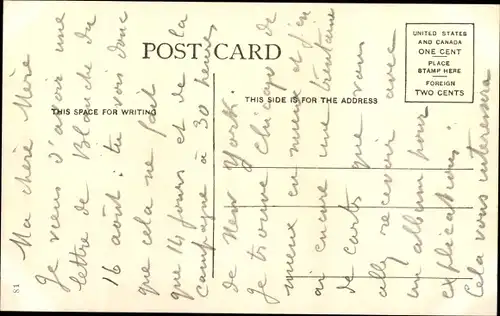 POST CARD
THIS SPACE FOR WRITING
THIS SIDE IS FOR THE ADDRESS
UNITED STATES
AND CANADA
ONE CENT
PLACE
STAMP HERE
FOREIGN
TWO CENTS
Ma chère Mère
Je viens d'avoir une
lettre de Blanche du
16 août. tu vois donc
que cela ne fait
que 14 jours et de la
campagne à 30 heures
de New York.
Je trouve Chicago de
mieux en mieux et j'en
ai encore une trentaine
de carts que vous
allez recevoir avec
un album pour
explications.
Cela vous interessera
81